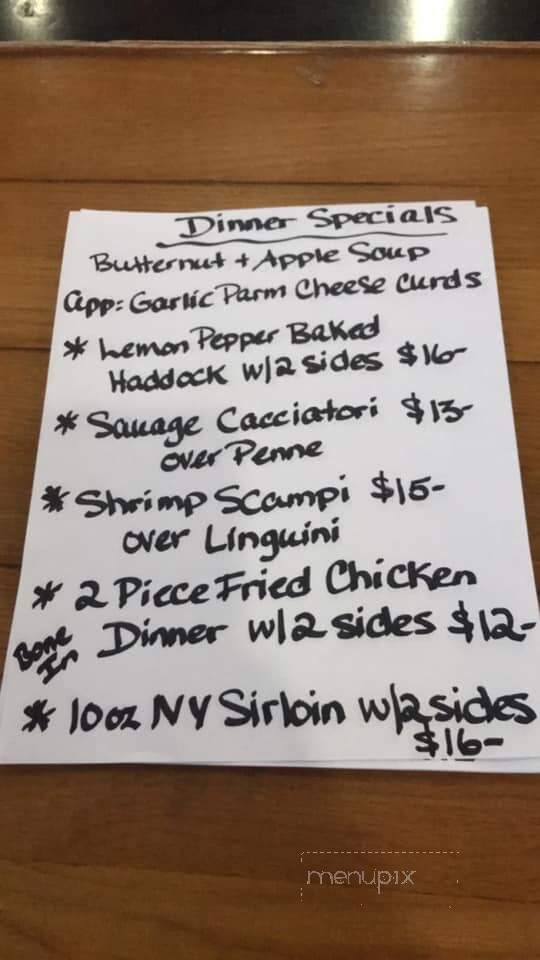 Dinner Specials
Butternut + Apple Soup
app: Garlic Parm Cheese Curds
* Lemon Pepper Baked
Haddock w/2 sides $16-
* Sauage Cacciatori $13-
over Penne
* Shrimp Scampi $15-
over Linguini
* 2 Piece Fried Chicken
Bone In Dinner w/2 sides $12-
* 10oz NY Sirloin w/2 sides
$16-
menupix